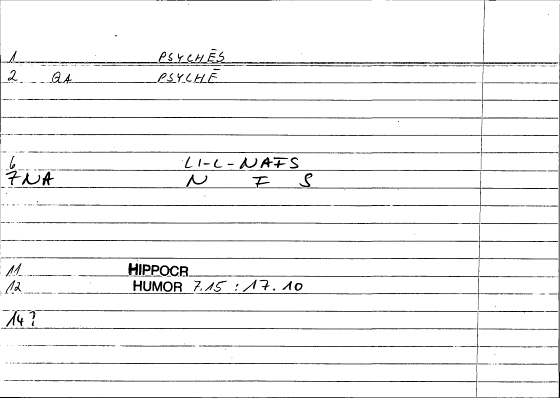 1 PSYCHĒS
2 QA PSYCHĒ
6 LI-L-NAFS
7 NA N F S
11 HIPPOCR
12 HUMOR 7.15 : 17.10
14?